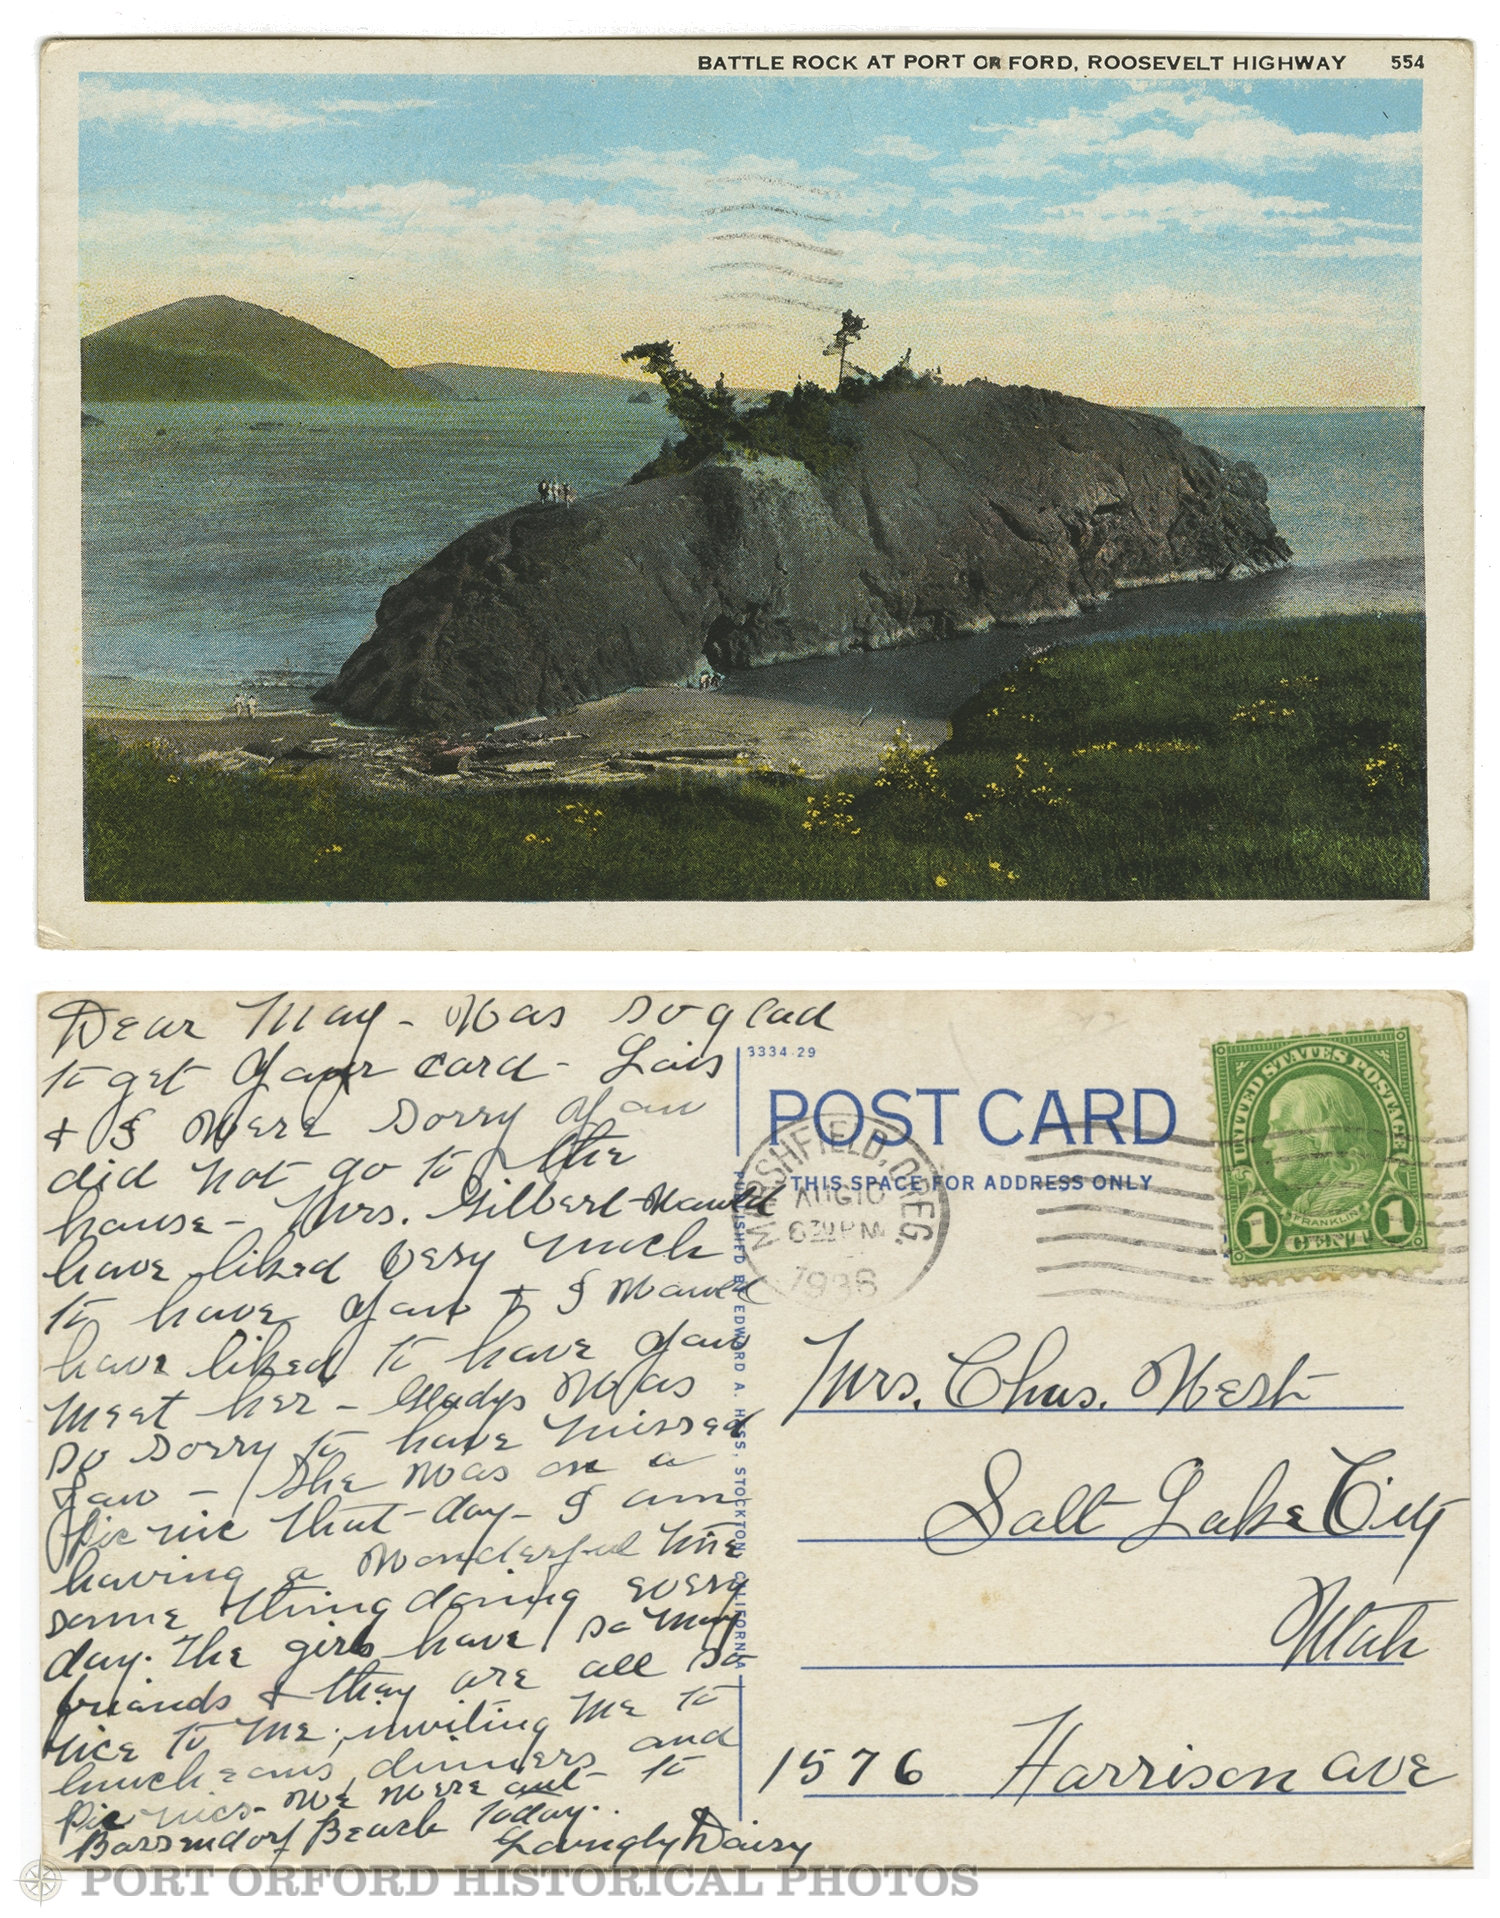 BATTLE ROCK AT PORT ORFORD, ROOSEVELT HIGHWAY 554
Dear May - Was so glad
to get your card - Lois
+ I were sorry you
did not go to the
house - Mrs. Gilbert would
have liked very much
to have you + I would
have liked to have you
meet her - Gladys was
so sorry to have missed
you - She was on a
pic nic that day - I am
having a wonderful time
some thing doing every
day. The girls have so many
friends + they are all so
nice to me, inviting me to
luncheons, dinners and
pic nics - we were out to
Bassendorf Beach today..
Lovingly Daisy
3334-29
POST CARD
THIS SPACE FOR ADDRESS ONLY
PUBLISHED BY EDWARD A. HESS, STOCKTON, CALIFORNIA
MARSHFIELD, OREG.
AUG 10
630 PM
1936
UNITED STATES POSTAGE
FRANKLIN
1 CENT 1
Mrs. Chas. West
Salt Lake City
Utah
1576 Harrison ave
PORT ORFORD HISTORICAL PHOTOS